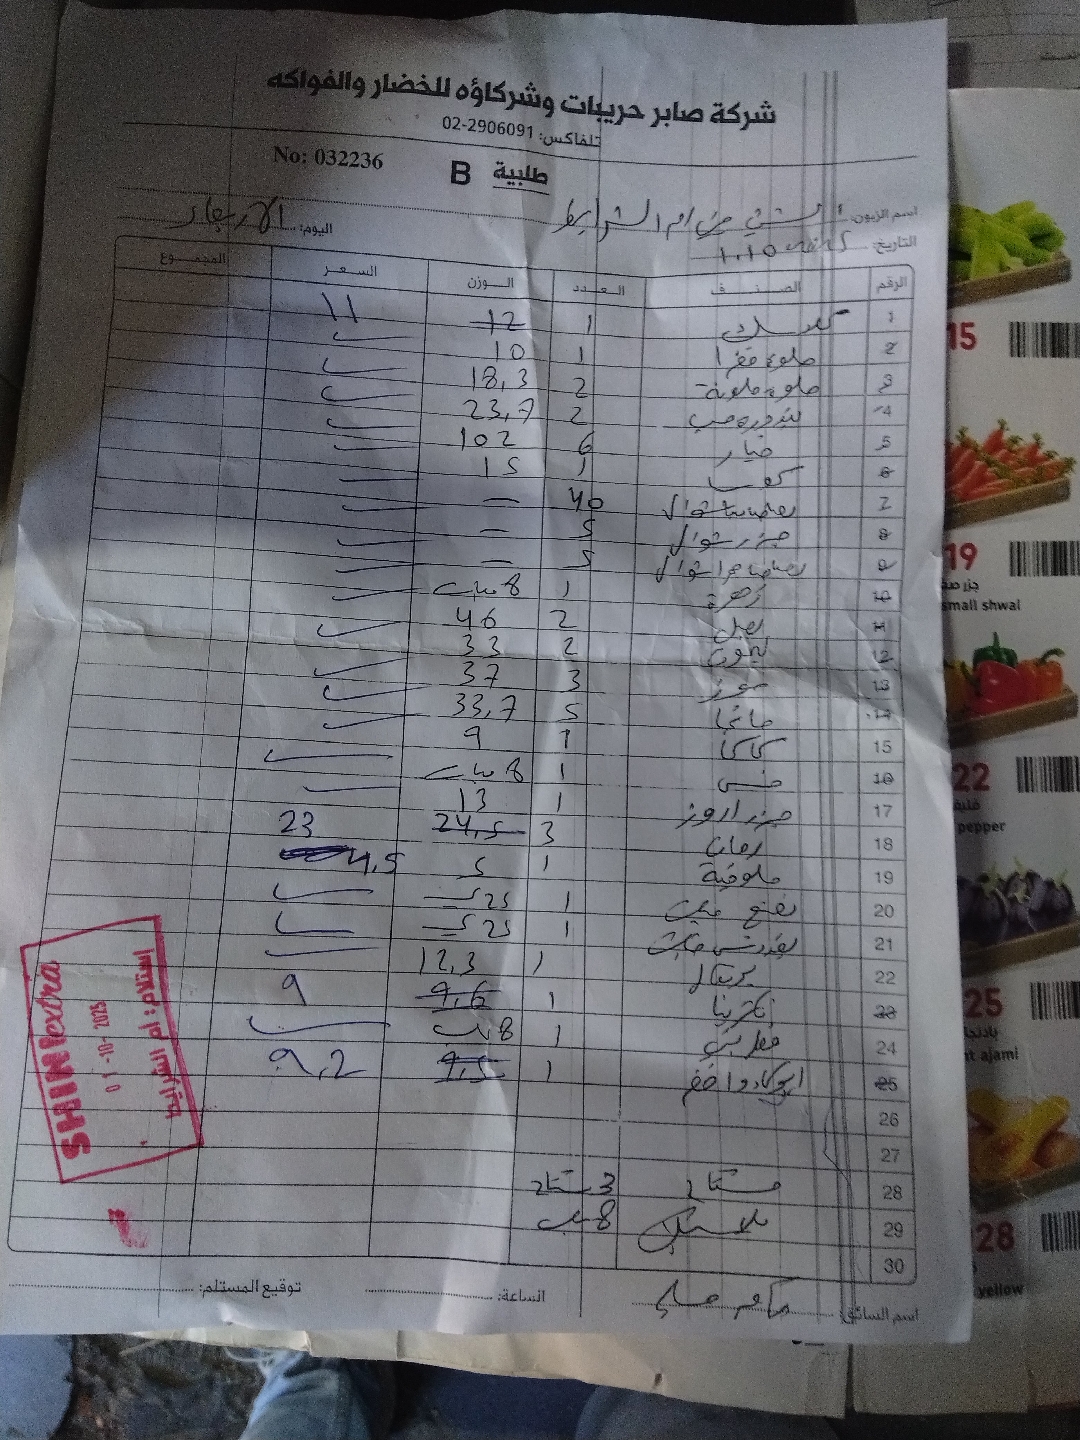 شركة صابر حريبات وشركاؤه للخضار والفواكه
تلفاكس: 02-2906091
No: 032236
طلبية B
اسم الزبون: الشني ام الشرايط
اليوم: الاربعاء
التاريخ: 1.10
الرقم الصنف العدد الوزن السعر المجموع
1 كلاسك 1 12 11
2 حلوه 1 10
3 حلوه ملونة 2 18,3
4 بندوره حب 2 23,7
5 خيار 6 102
6 كوسا 1 15
7 بطاطا شوال 40 –
8 جزر شوال 5 –
9 شوال 5 –
10 زهرة 1 8
11 بصل 2 46
12 ليمون 2 33
13 موز 3 37
14 مانجا 5 33,7
15 كاكا 1 9
16 خس 1 8
17 جزر 1 13
18 رمان 3 24,5 23
19 ملوخية 1 5 4,5
20 نعنع 1 25
21 بقدونس 1 25
22 برتقال 1 12,3
23 نكترينا 1 9,6 9
24 1 8
25 افوكادو 1 9,5 9,2
26
27
28 مشتاح 3 مشتاح
29 بلاستيك 8
30
اسم السائق:
الساعة:
توقيع المستلم:
SHINI extra
01-10-2025
استلام: ام الشرايط
15
19
جزر
small shwal
22
pepper
25
nt ajami
28
yellow